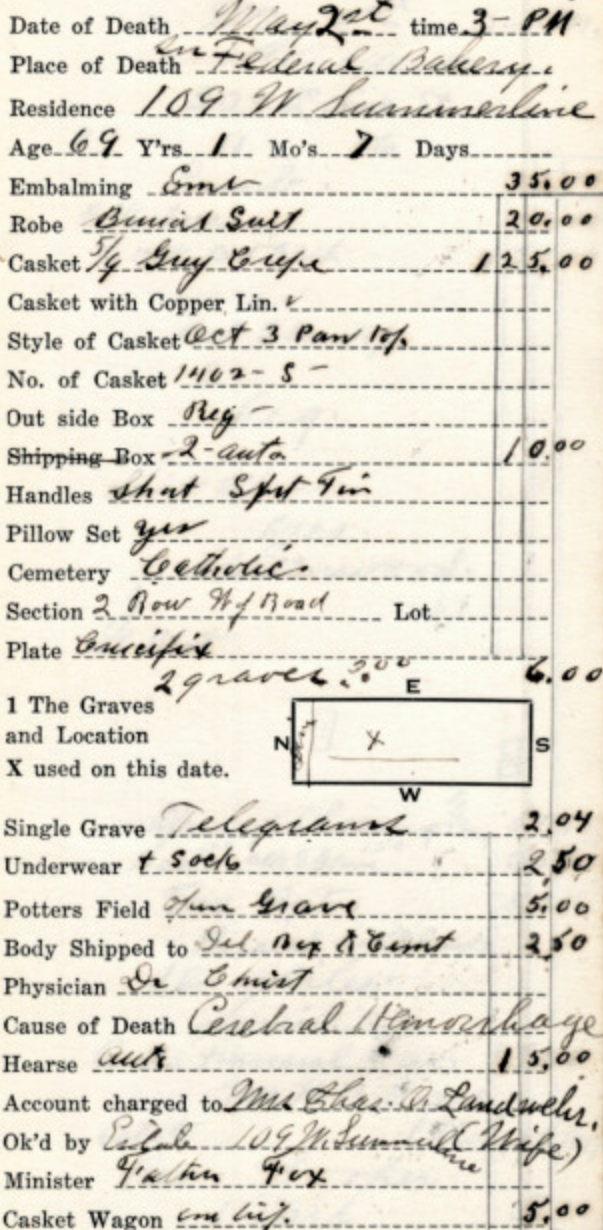 Date of Death May 2st time 3- PM
Place of Death in Federal Bakery.
Residence 109 W Summerline
Age 69 Y'rs 1 Mo's 7 Days
Embalming Emb 35.00
Robe Burial Suit 20.00
Casket 5/9 Grey Crepe 125.00
Casket with Copper Lin.
Style of Casket Oct 3 Pan Top
No. of Casket 1402-S-
Out side Box Reg-
Shipping Box 2-auto 10.00
Handles Short Tin
Pillow Set yes
Cemetery Catholic
Section 2 Row W of Road Lot
Plate Crucifix
2 graves 3.00 6.00
E
1 The Graves
and Location
X used on this date.
N X S
W
Single Grave Telegrams 2.04
Underwear + Socks 2.50
Potters Field Grave 5.00
Body Shipped to Del Box to Cemt 2.50
Physician Dr Christ
Cause of Death Cerebral Hemorrhage
Hearse auto 15.00
Account charged to Mrs Chas. Landwehr.
Ok'd by 109 W. Summerline (Wife)
Minister Father Fox
Casket Wagon 5.00